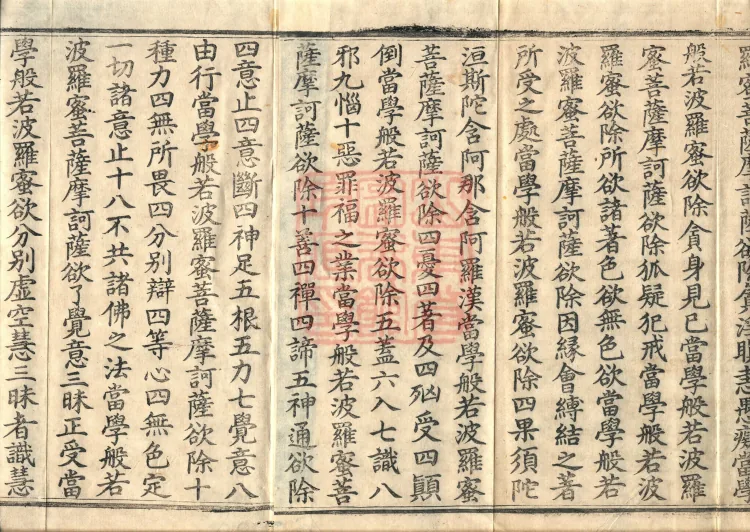 羅蜜菩薩摩訶薩欲除
般若波羅蜜欲除貪身見已當學般若波羅
蜜菩薩摩訶薩欲除狐疑犯戒當學般若波
羅蜜欲除所欲諸著色欲無色欲當學般若
波羅蜜菩薩摩訶薩欲除因緣會縛結之著
所受之處當學般若波羅蜜欲除四果須陀
洹斯陀含阿那含阿羅漢當學般若波羅蜜
菩薩摩訶薩欲除四憂四著及四㐫受四顛
倒當學般若波羅蜜欲除五蓋六入七識八
邪九惱十惡罪福之業當學般若波羅蜜菩
薩摩訶薩欲除十善四禪四諦五神通欲除
四意止四意斷四神足五根五力七覺意八
由行當學般若波羅蜜菩薩摩訶薩欲除十
種力四無所畏四分別辯四等心四無色定
一切諸意止十八不共諸佛之法當學般若
波羅蜜菩薩摩訶薩欲了覺意三昧正受當
學般若波羅蜜欲分別虛空慧三昧者識慧